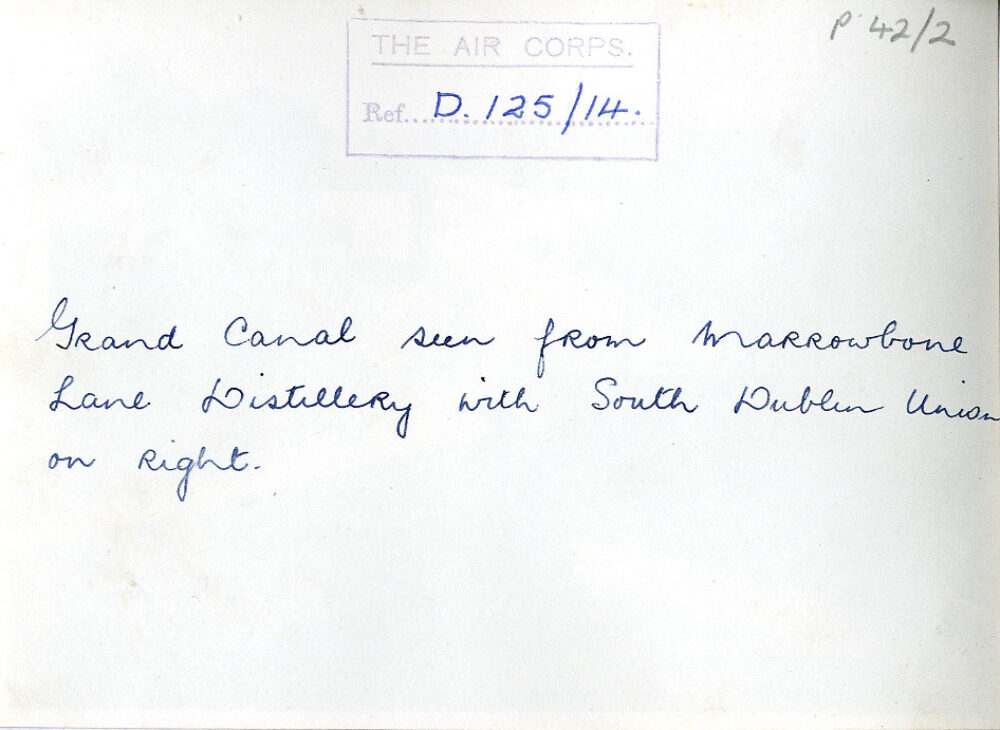 P. 42/2
THE AIR CORPS.
Ref. D. 125/14.
Grand Canal seen from Marrowbone
Lane Distillery with South Dublin Union
on right.